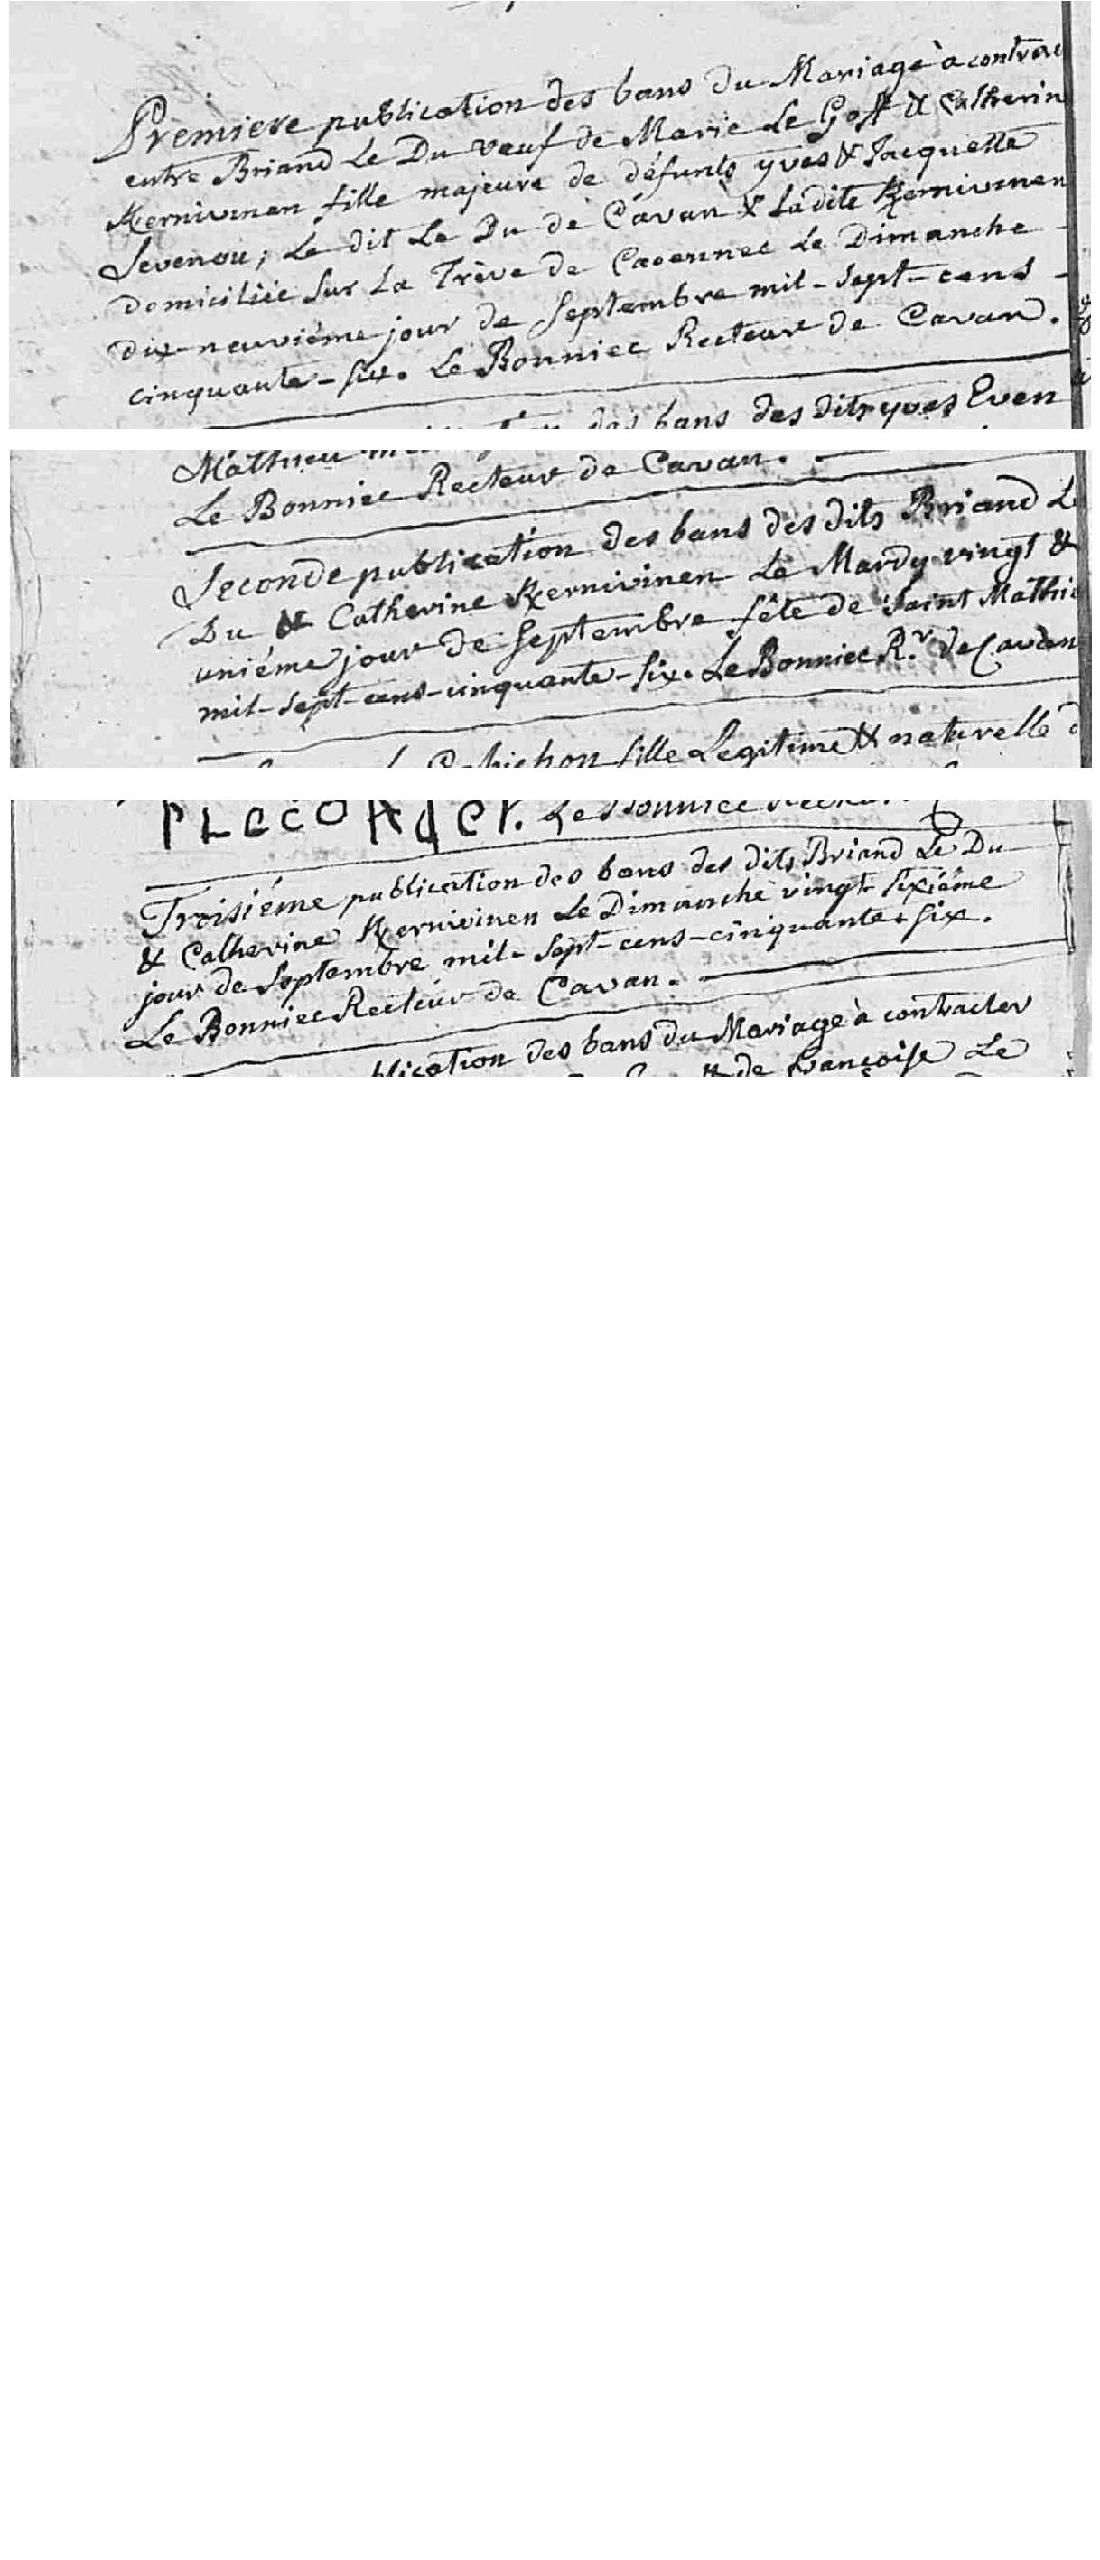 Premiere publication des bans du Mariage à contrac
entre Briand Le Du veuf de Marie Le Goff & Catherin
Kernivinen fille majeure de défunts yves & Jacquette
Sevenou; Le dit Le Du de Cavan & Ladite Kernivinen
domiciliée sur La Trève de Caoennec Le Dimanche
dix-neuviéme jour de Septembre mil-sept-cens
cinquante-six. Le Bonniec Recteur de Cavan.
des bans des dits yves Even
Mathieu
Le Bonniec Recteur de Cavan.
Seconde publication des bans des dits Briand Le
Du & Catherine Kernivinen Le Mardy vingt &
uniéme jour de Septembre fête de Saint Mathie
mil-sept-cens-cinquante-six. Le Bonniec R.r de Cavan
fille Legitime & naturelle d
Le Bonniec Recteur
Troisiéme publication des bans des dits Briand Le Du
& Catherine Kernivinen Le Dimanche vingt sixiéme
jour de Septembre mil-sept-cens-cinquante-six.
Le Bonniec Recteur de Cavan.
blication des bans du Mariage à contracter
& de francoise Le